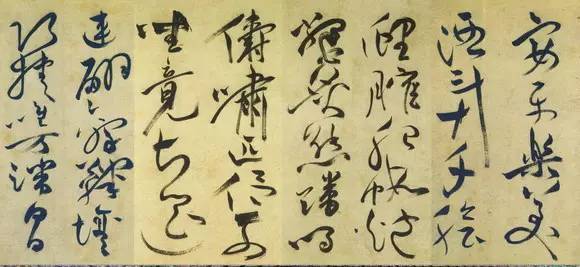 宴平樂美
酒斗十千膾
鯉臇胎鰕炮
鱉炙熊蹯鳴
儔嘯匹侶列
坐竟長筵
連翩擊鞠壤
巧捷唯万端